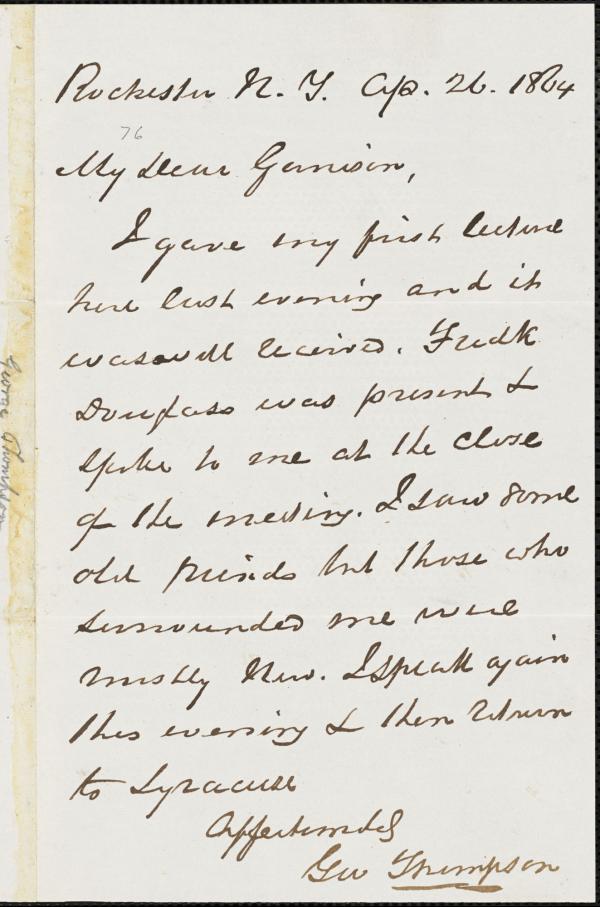 Rochester N. Y. Ap. 26. 1864
76
My Dear Garrison,
I gave my first lecture
here last evening and it
was well received. Fredk
Douglass was present &
spoke to me at the close
of the meeting. I saw some
old friends but those who
surrounded me were
mostly New. I speak again
this evening & then return
to Syracuse
Affectionately
Geo Thompson
George Thompson